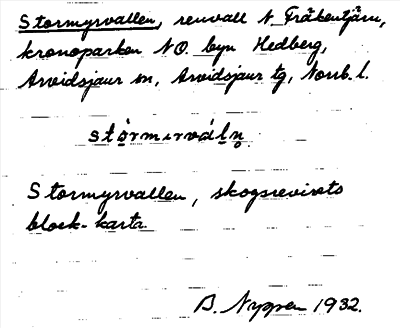 Stormyrvallen, renvall N Fräkentjärn,
kronoparken NO. byn Hedberg,
Arvidsjaur sn, Arvidsjaur tg, Norrb. l.
Stormyrvallen, skogsrevirets
block-karta.
B. Nyppen 1932.